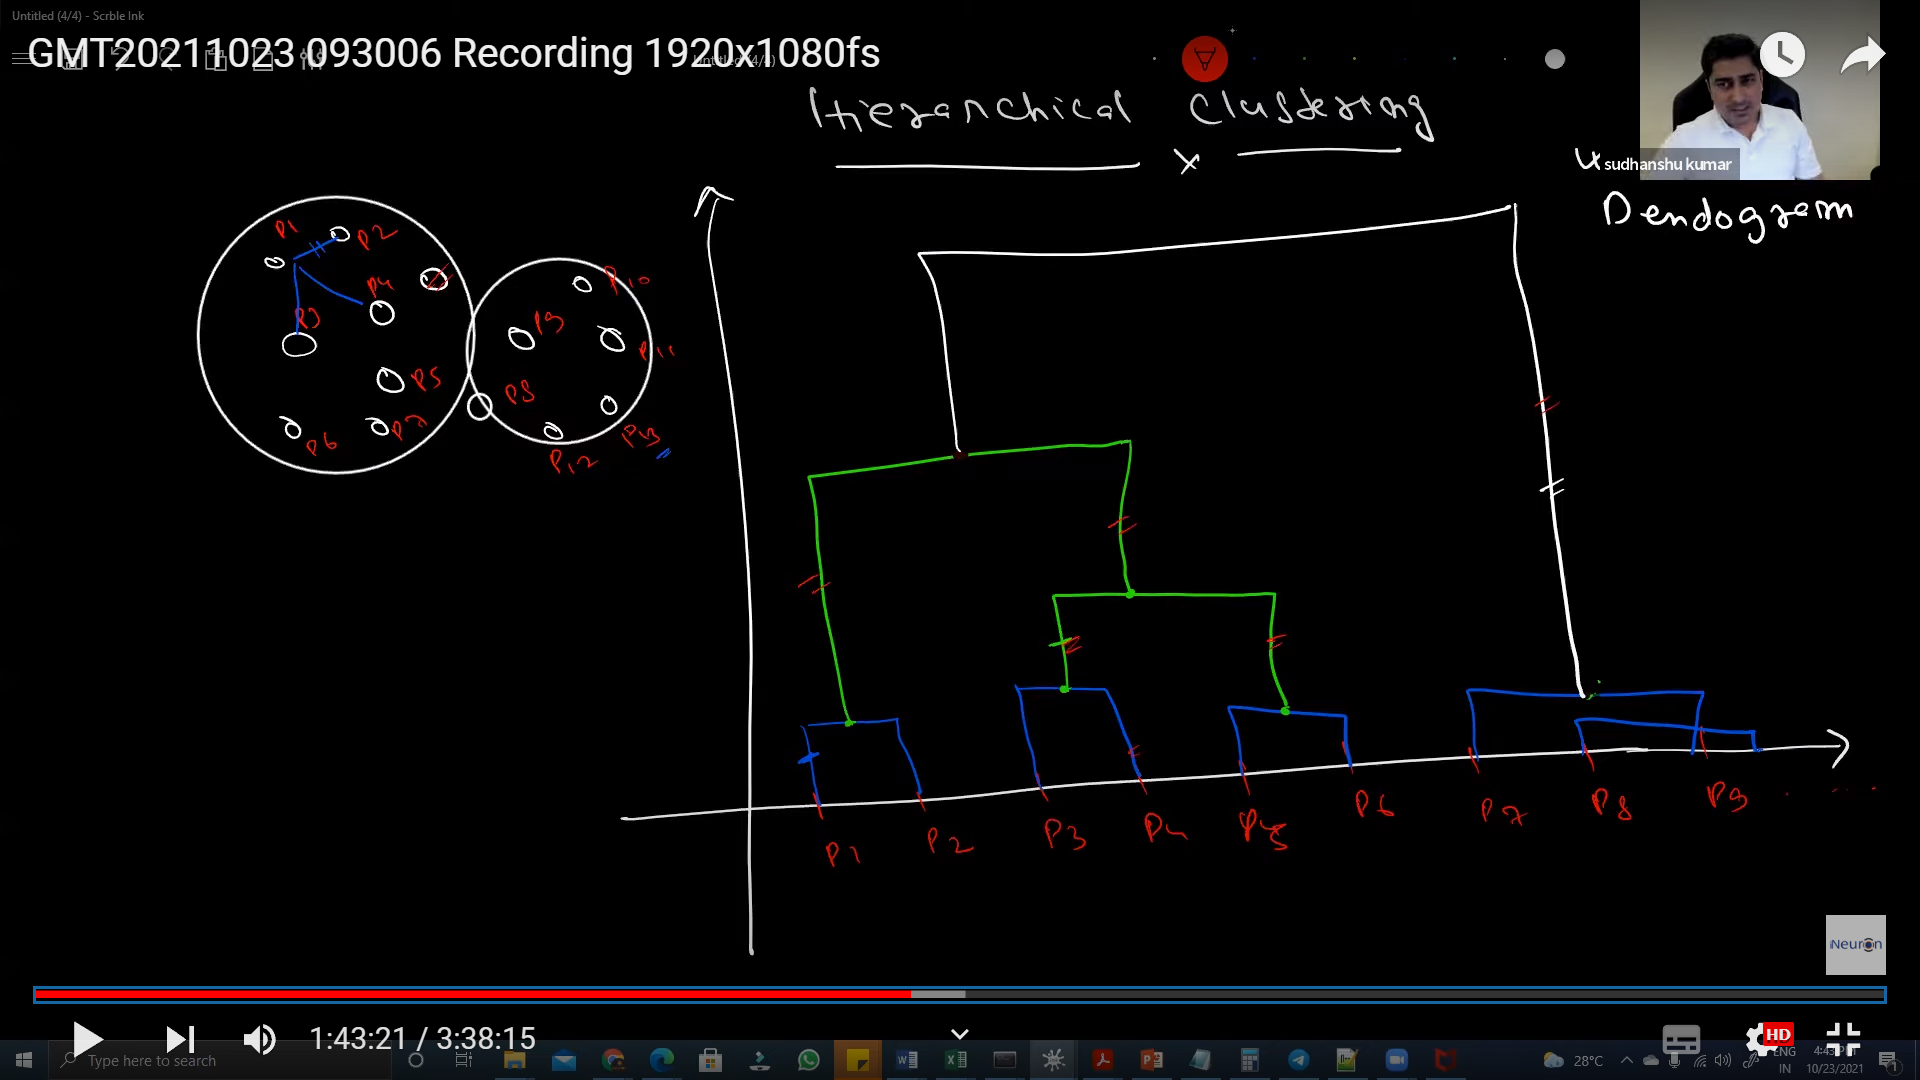 Untitled (4/4) - Scrble Ink
GMT20211023 093006 Recording 1920x1080fs
Hierarchical Clustering
sudhanshu kumar
Dendogram
P1
P2
P10
P4
P3
P9
P11
P5
P8
P7
P6
P13
P12
P1 P2 P3 P4 P5 P6 P7 P8 P9 . . . . .
iNeuron
1:43:21 / 3:38:15
HD
Type here to search
28°C
ENG
IN
10/23/2021